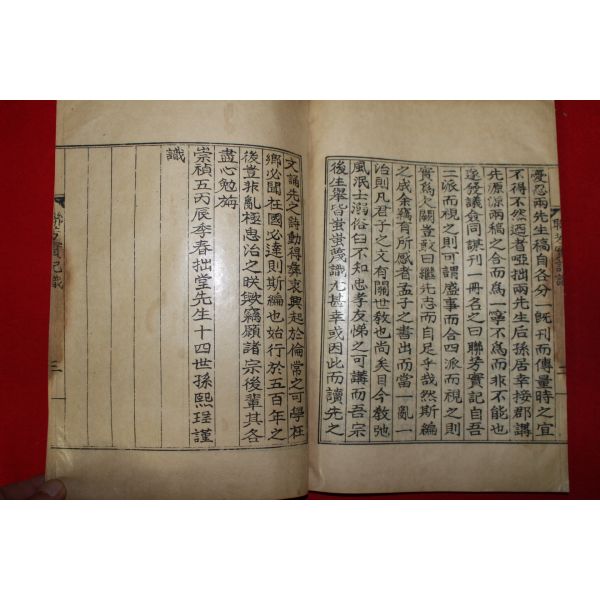 憂忍兩先生稿自各分一旣刊而傳量時之宜
不得不然迺者啞拙兩先生后孫居幸接郡講
先源源兩稿之合而爲一寧不爲而非不能也
遂發議僉同謀刊一冊名之曰聯芳實記自吾
二派而視之則可謂盛事而合四派而視之則
實爲欠闕豈敢曰繼先志而自足乎哉然斯編
之成余竊有所感者孟子之書出而當一亂一
治則凡君子之文有關世敎也尚矣目今敎弛
風泯士溺俗曰不知忠孝友悌之可講而吾宗
後生擧皆蚩蚩蔑識尤甚幸或因此而讀先之
文誦先之詩動得彛衷興起於倫常之可學在
鄕必聞在國必達則斯編也始行於五百年之
後豈非亂極思治之联歟竊願諸宗後輩其各
盡心勉旃
崇禎五丙辰季春拙堂先生十四世孫熙瑆謹
識
聯芳實記識
三